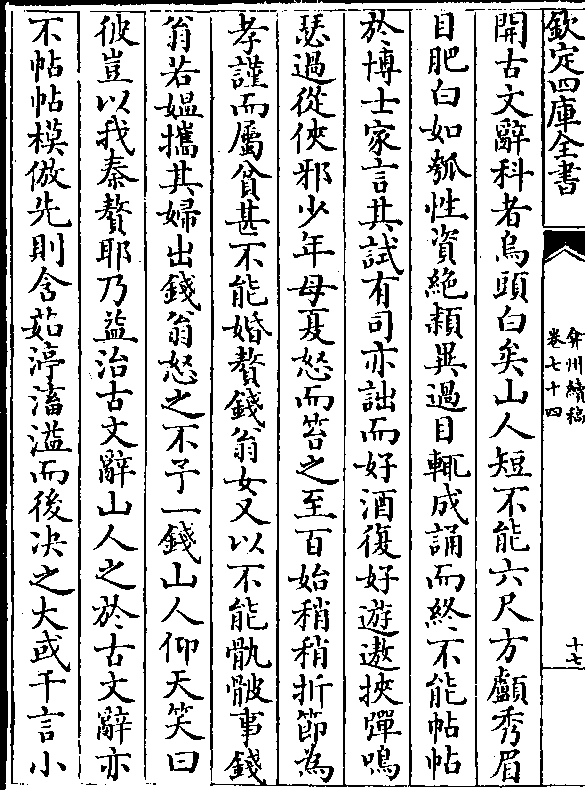 欽定四庫全書
弇州續稿
卷七十四
十七
開古文辭科者烏頭白矣山人短不能六尺方顱秀眉
目肥白如瓠性資絶纇異過目輒成誦而終不能帖帖
於博士家言其試有司亦詘而好酒復好遊遨挾彈鳴
瑟過從俠邪少年母夏怒而笞之至百始稍稍折節為
孝謹而屬貧甚不能婚贅錢翁女又以不能骫骳事錢
翁若媼攜其婦出錢翁怒之不予一錢山人仰天笑曰
彼豈以我秦贅耶乃益治古文辭山人之於古文辭亦
不帖帖模倣先則含茹渟滀溢而後決之大或千言小